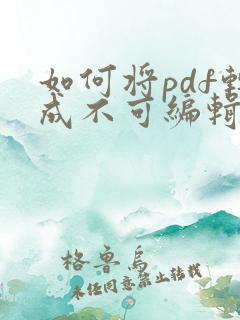 如何将pdf
成不可编辑
格鲁乌
未经同意禁止转载